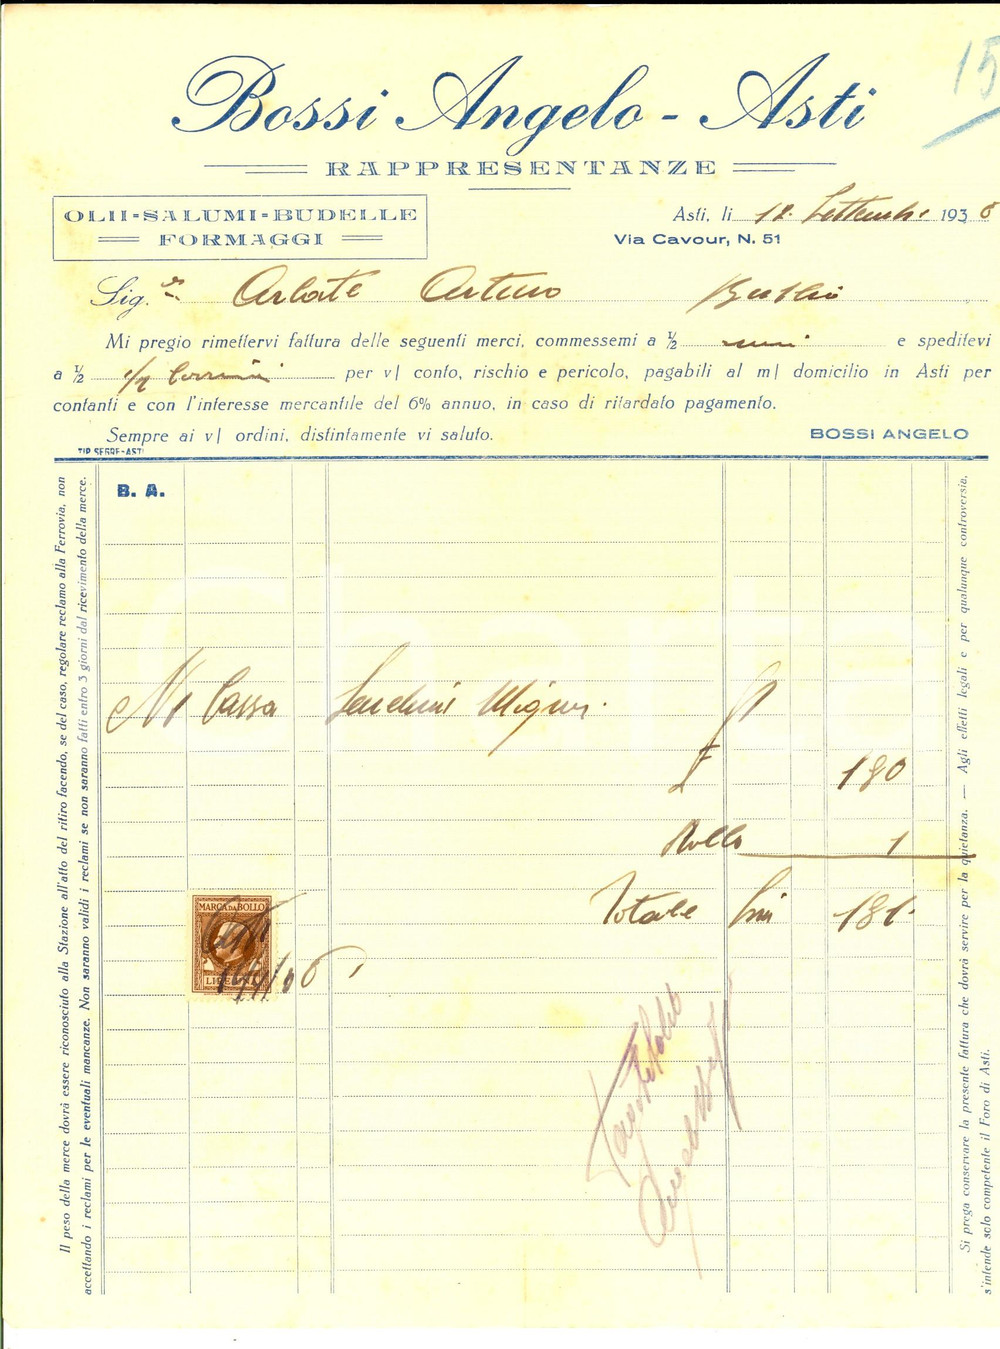 15
Bossi Angelo - Asti
RAPPRESENTANZE
OLII-SALUMI-BUDELLE
FORMAGGI
Asti, li 18 Settembre 1936
Via Cavour, N. 51
Sig. Arturo
Mi pregio rimettervi fattura delle seguenti merci, commessemi a ½ e speditevi
a ½ per v/ conto, rischio e pericolo, pagabili al m/ domicilio in Asti per
contanti e con l'interesse mercantile del 6% annuo, in caso di ritardato pagamento.
Sempre ai v/ ordini, distintamente vi saluto.
BOSSI ANGELO
TIP. SEGRE-ASTI
B. A.
N 1 Cassa
£ 180
Bollo 1
Totale Lire 181.
MARCA DA BOLLO
LIRE UNA
Il peso della merce dovrà essere riconosciuto alla Stazione all'atto del ritiro facendo, se del caso, regolare reclamo alla Ferrovia, non
accettando i reclami per le eventuali mancanze. Non saranno validi i reclami se non saranno fatti entro 3 giorni dal ricevimento della merce.
Si prega conservare la presente fattura che dovrà servire per la quietanza. — Agli effetti legali e per qualunque controversia,
s'intende solo competente il Foro di Asti.